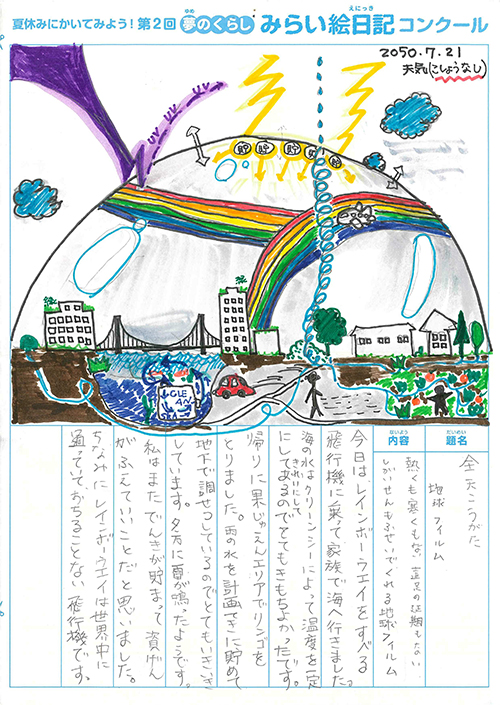 夏休みにかいてみよう！第2回 夢のくらし みらい絵日記コンクール
ゆめ
えにっき
2050.7.21
天気(こしょうなし)
貯 貯 貯 貯 貯
UV UV
CLEAN
だいめい
題名
全天こうがた
地球フィルム
ないよう
内容
熱くも寒くもない
しがいせんもふせいでくれる地球フィルム
今日は、レインボーウエイをすべる
飛行機に乗って、家族で海へ行きました。
海の水はクリーンシーによって温度を一定
きれいにして
にしてあるのでとてもきもちよかったです。
帰りに果じゅえんエリアでリンゴを
とりました。雨の水を計画てきに貯めて
地下で調せつしているのでとてもいきいき
しています。夕方に雷が鳴ったようです。
私はまたでんきが貯まって資げん
がふえていいことだと思いました。
ちなみにレインボーウエイは世界中に
通っていて、おちることない飛行機です。